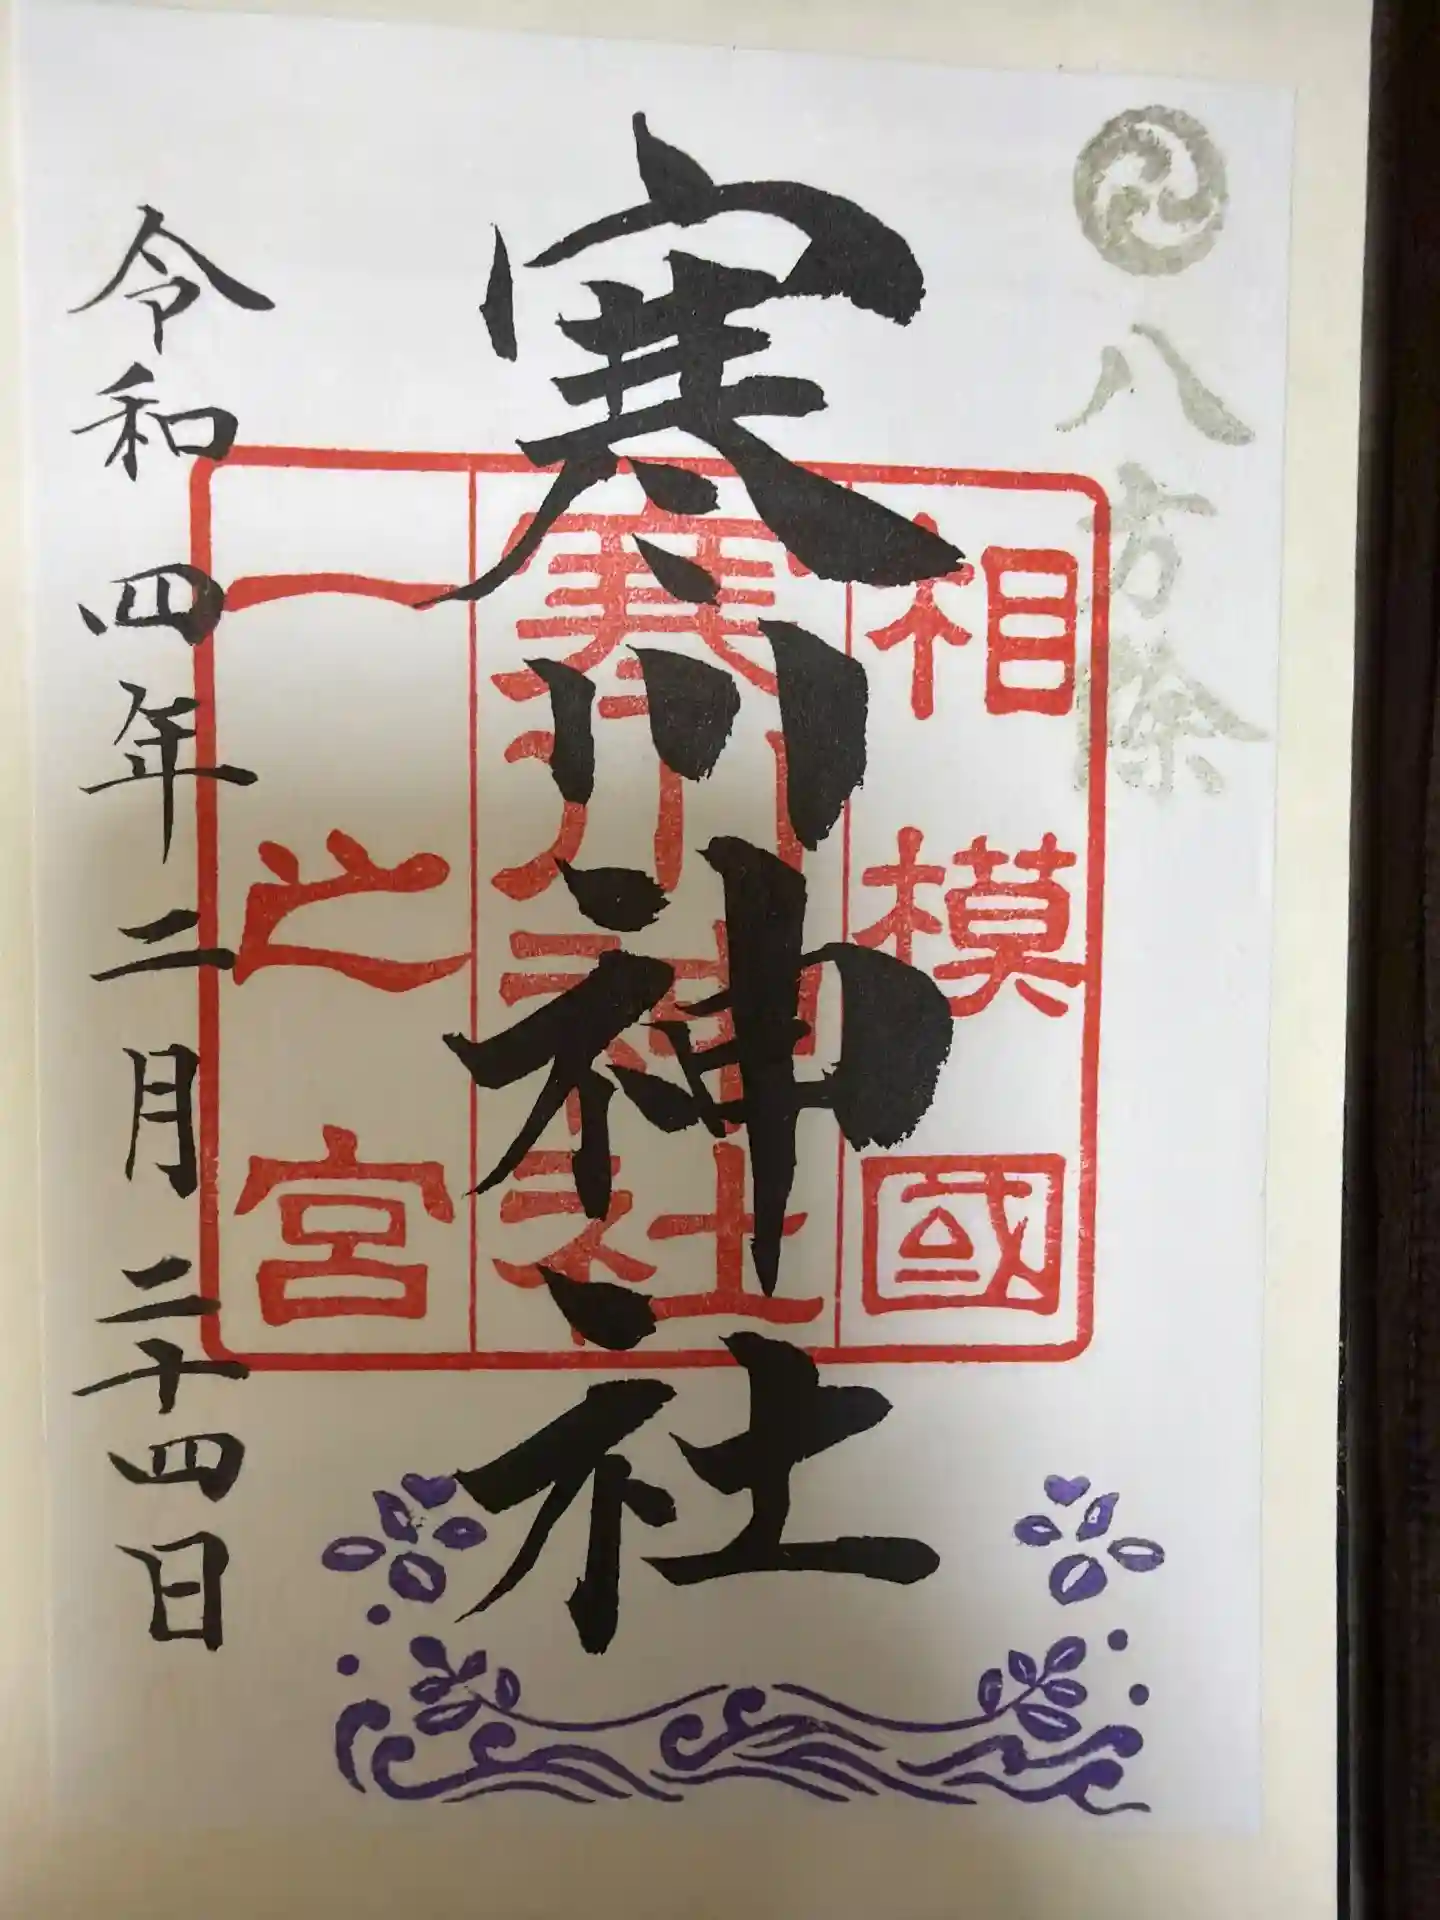 八方除
相模國
寒川神社
一之宮
寒川神社
令和四年二月二十四日